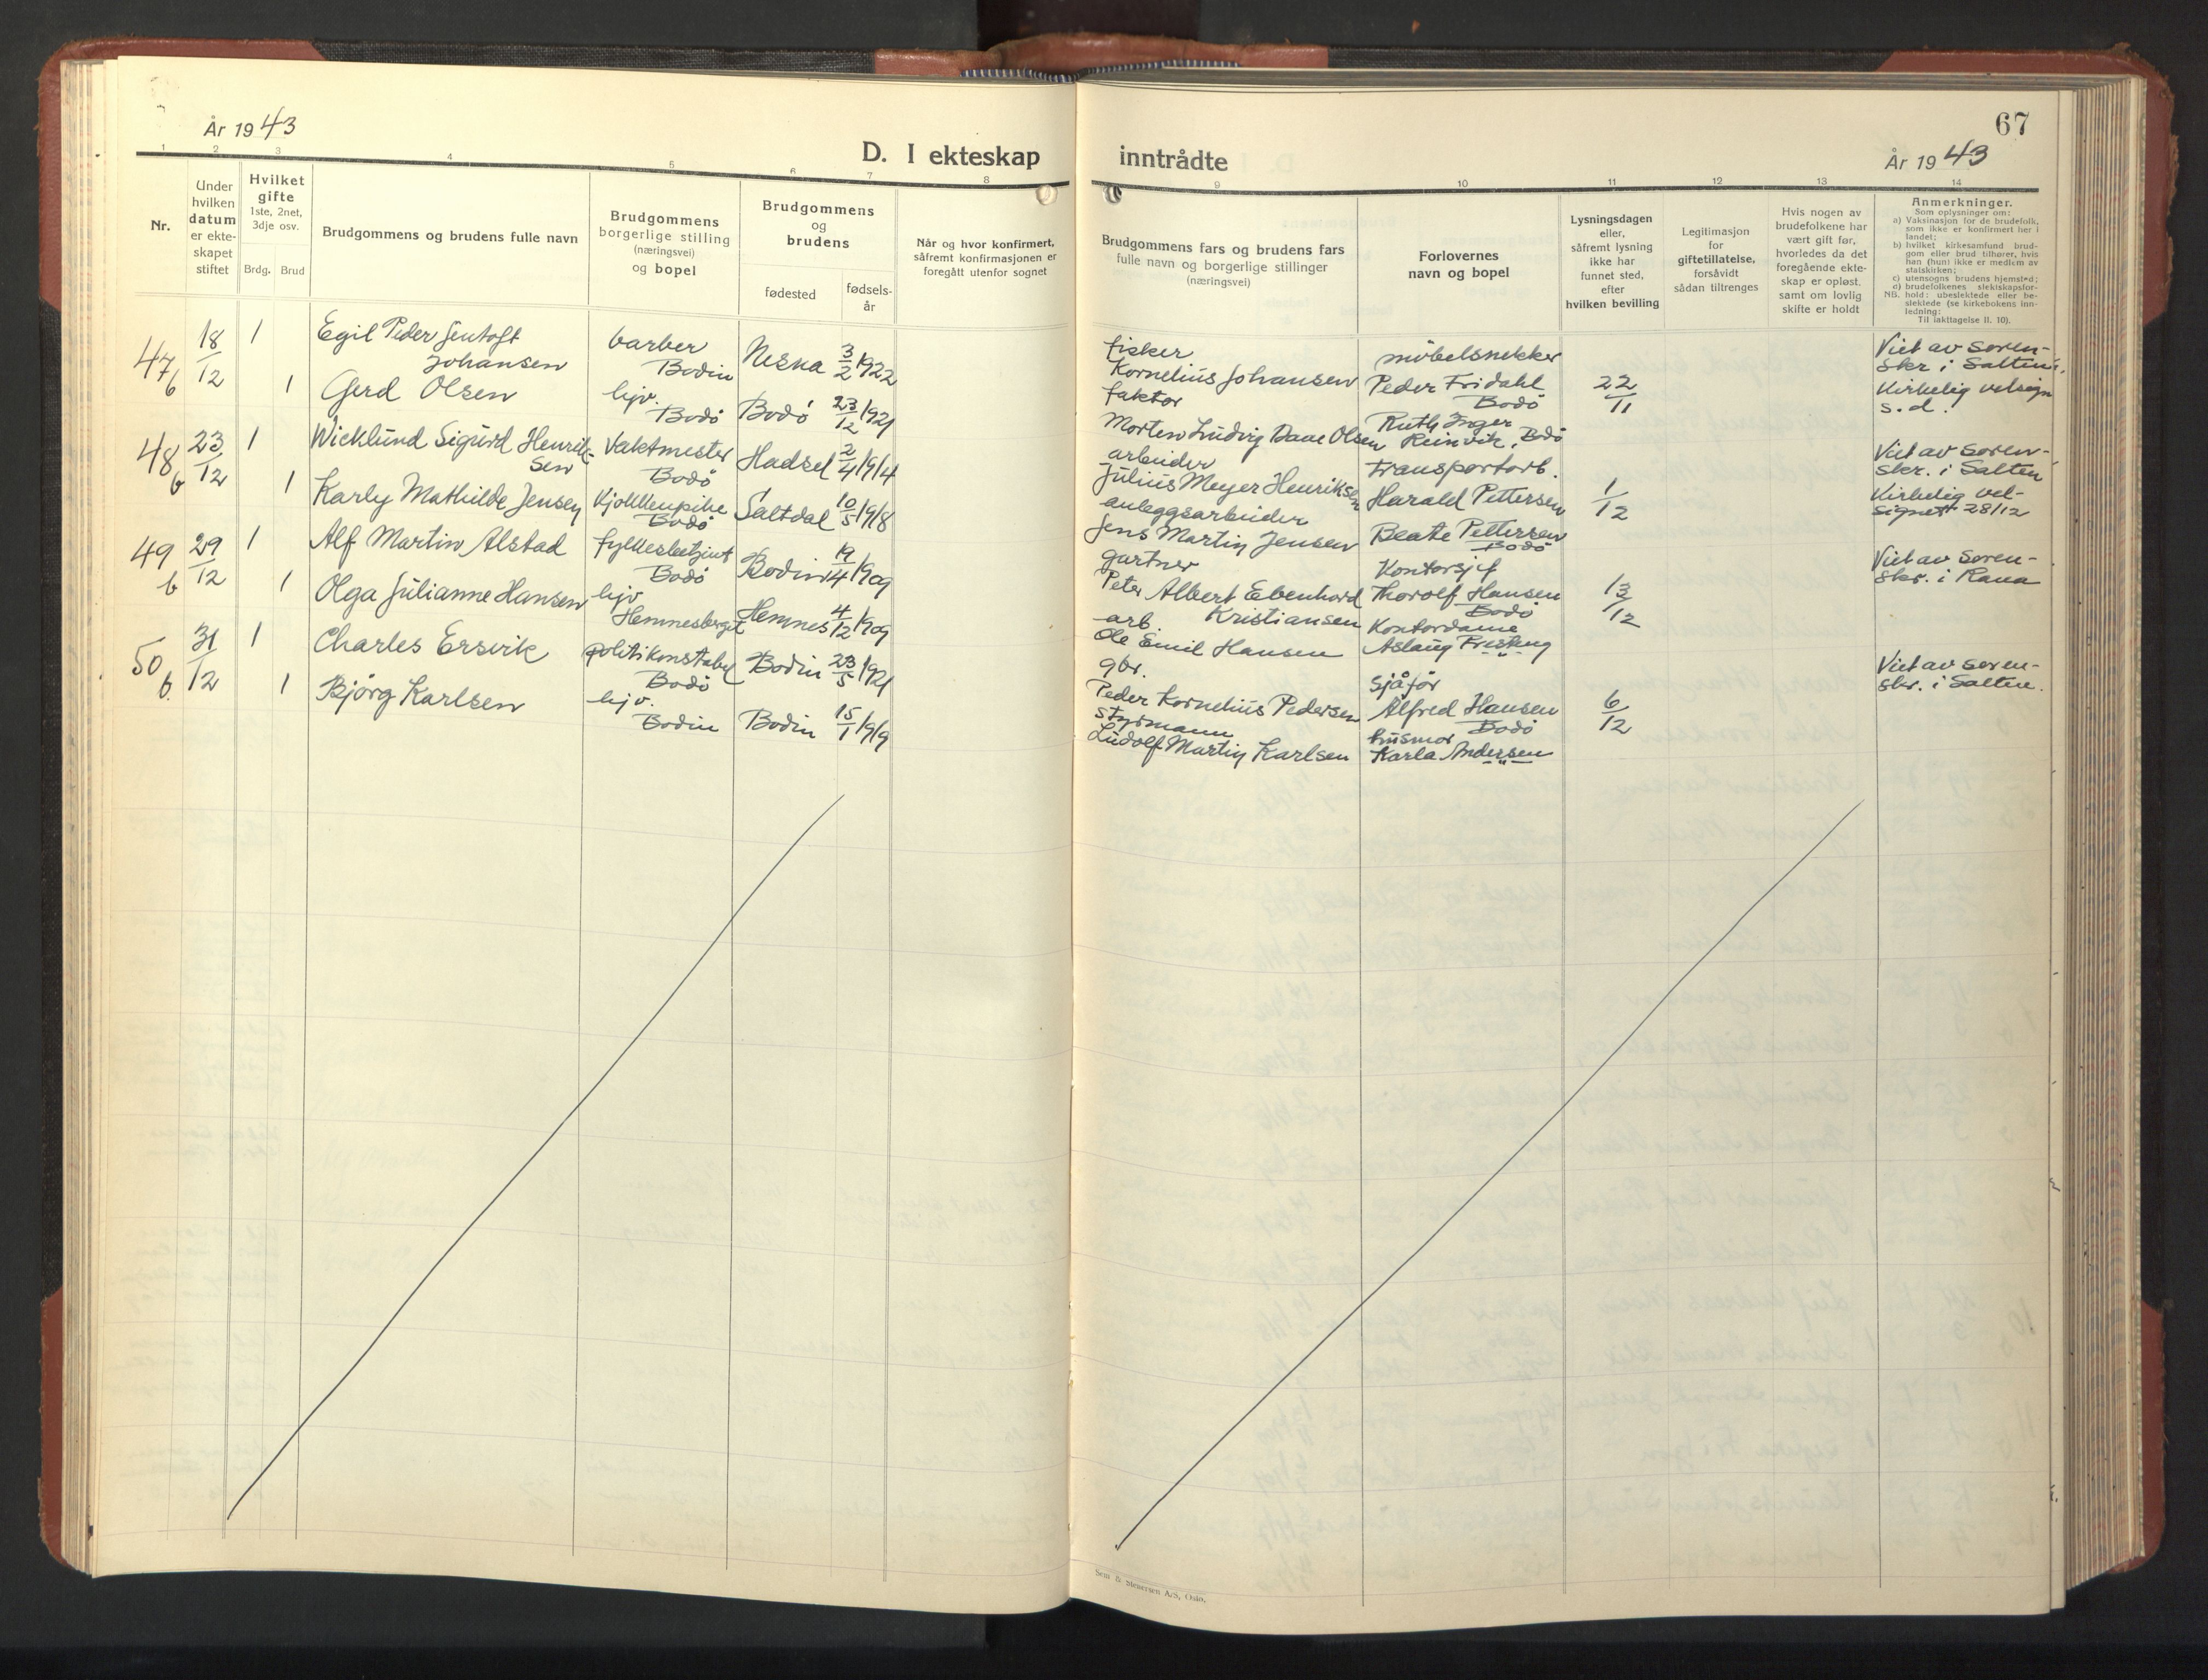 År 1943
D. I ekteskap
1
2
3
4
5
6
7
8
Nr.
Under
hvilken
datum
er ekte-
skapet
stiftet
Hvilket
gifte
1ste, 2net,
3dje osv.
Brdg.
Brud
Brudgommens og brudens fulle navn
Brudgommens
borgerlige stilling
(næringsvei)
og bopel
Brudgommens
og
brudens
fødested
fødsels-
år
Når og hvor konfirmert,
såfremt konfirmasjonen er
foregått utenfor sognet
47
b
18/12
1
Egil Peder Jentoft
Johansen
barber
Bodin
Nesna
3/2 1922
1
Gerd Olsen
hjv.
Bodö
Bodö
23/12 1921
48
b
23/12
1
Wicklund Sigurd Henrik-
sen
Vaktmester
Bodö
Hadsel
2/4 1914
1
Karly Mathilde Jensen
Kjökkenpike
Bodö
Saltdal
10/5 1918
49
b
29/12
1
Alf Martin Alstad
fylkesbetjent
Bodö
Bodin
19/4 1909
1
Olga Julianne Hansen
hjv
Hemnesberget
Hemnes
4/12 1909
50
b
31/12
1
Charles Ersvik
politikonstabel
Bodö
Bodin
23/5 1921
1
Bjørg Karlsen
hjv.
Bodin
Bodin
15/1 1919
67
inntrådte
År 1943
9
10
11
12
13
14
Brudgommens fars og brudens fars
fulle navn og borgerlige stillinger
(næringsvei)
Forlovernes
navn og bopel
Lysningsdagen
eller,
såfremt lysning
ikke har
funnet sted,
efter
hvilken bevilling
Legitimasjon
for
giftetillatelse,
forsåvidt
sådan tiltrenges
Hvis nogen av
brudefolkene har
vært gift før,
hvorledes da det
foregående ekte-
skap er opløst,
samt om lovlig
skifte er holdt
Anmerkninger.
Som oplysninger om:
a) Vaksinasjon for de brudefolk,
som ikke er konfirmert her i
landet;
b) hvilket kirkesamfund brud-
gom eller brud tilhører, hvis
han (hun) ikke er medlem av
statskirken;
c) utensogns brudens hjemsted;
d) brudefolkenes slektskapsfor-
NB. hold: ubeslektede eller be-
slektede (se kirkebokens inn-
ledning:
Til iakttagelse II. 10).
fisker
Kornelius Johansen
faktor
Morten Ludvig Daae Olsen
möbelsnekker
Peder Fridahl
Bodö
Ruth Inger
Reinvik, Bodö
22/11
Viet av soren-
skr. i Salten.
Kirkelig velsign
s.d.
arbeider
Julius Meyer Henriksen
anleggsarbeider
Jens Martin Jensen
Transportarb.
Harald Pettersen
Beate Pettersen
Bodö
1/12
Viet av soren-
skr. i Salten
Kirkelig vel-
signet 28/12
gartner
Peter Albert Ebenhard
Kristiansen
arb.
Ole Emil Hansen
Kontorsjef
Thorolf Hansen
Bodö
Kontordame
Aslaug
13/12
Viet av soren-
skr. i Rana
gbr.
Peder Kornelius Pedersen
styrmann
Ludolf Martin Karlsen
Sjåför
Alfred Hansen
Bodö
husmor
Karla Andersen
6/12
Viet av soren-
skr. i Salten.
Sem & Stenersen A/S, Oslo.